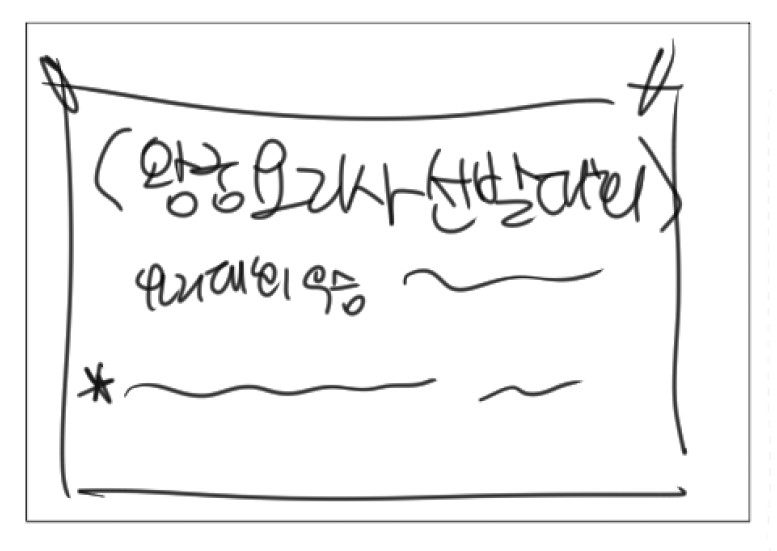 (왕궁요리사 선발대회)
요리대회 우승
*